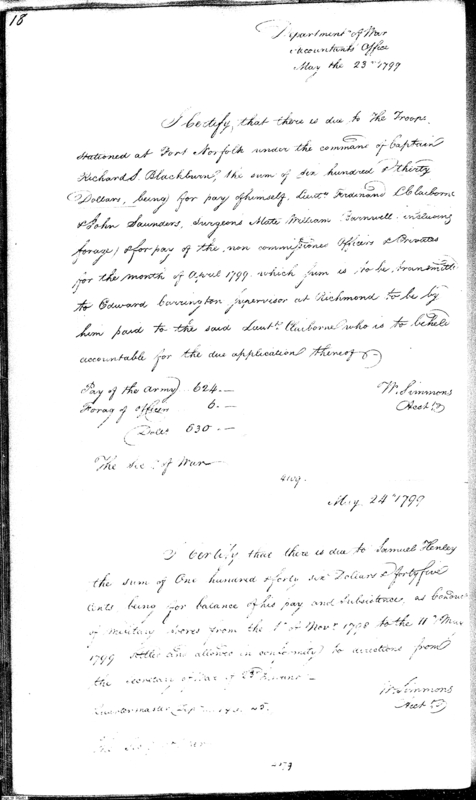 18
Department of War
Accountants Office
May the 23d 1799
I Certify, that there is due to The Troops
stationed at Fort Norfolk under the command of Captain
Richard S. Blackburn, the sum of six hundred & thirty
Dollars, being for pay of himself, Lieuts Ferdinand L Claiborne
& John Saunders, surgeons Mate William Barnwell inclusive
forage) & for pay of the non commissioned Officers & Privates
for the month of April 1799. which sum is to be transmitted
to Edward Carrington supervisor at Richmond to be by
him paid to the said Lieut. Claiborne who is to be held
accountable for the due application thereof
Pay of the Army 624.—
W. Simmons
Forag of officers 6.—
Acct
Dolls 630.—
The Sec. of War
May 24th 1799
I Certify that there is due to Samuel Henley
the sum of One hundred & forty six Dollars & forty five
Cents being for balance of his pay and subsistence, as
of military stores from the 1st of Novr 1798 to the 11th
1799 settled and allowed in conformity to directions from
the secretary of War
W. Simmons
Quartermaster
Acct